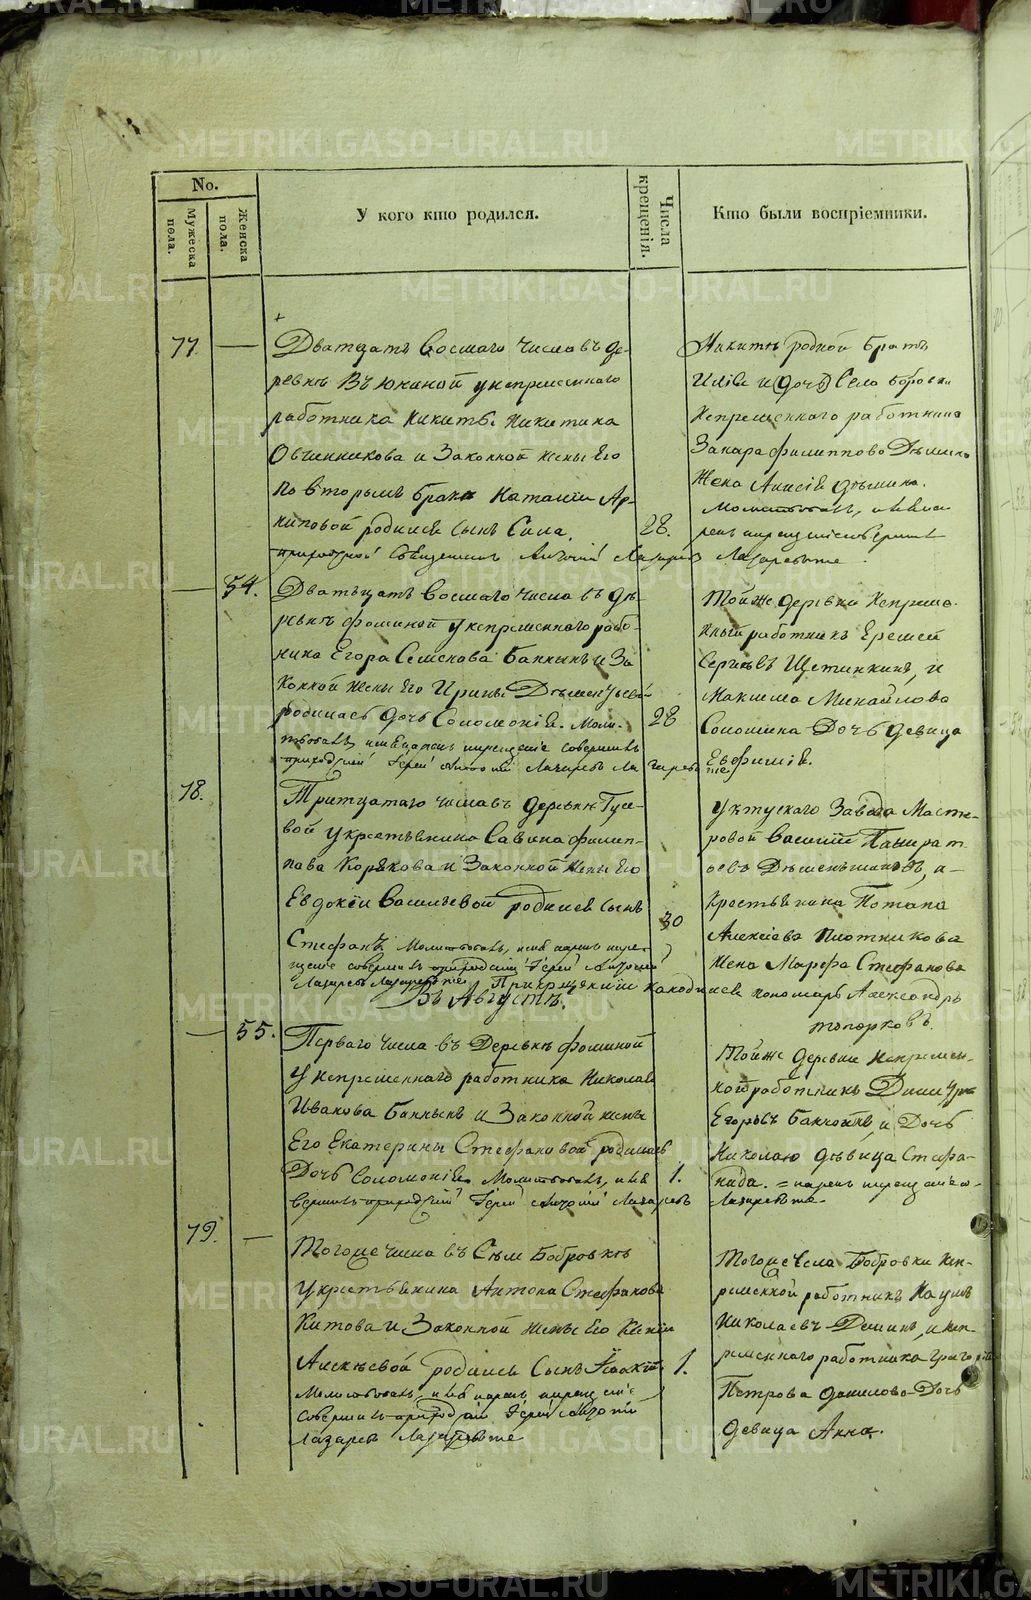 No.
Мужеска пола.
Женска пола.
У кого кто родился.
Числа крещенія.
Кто были воспріемники.
77.
Дватцать восмаго числа въ де-
ревнѣ Вьюхиной у непремѣннаго
работника Никиты Никитина
Овчинникова и законной жены его
по второмъ браке Наталіи Ар-
хиповой родился сынъ Сила.
28.
приходской Священникъ Антоній Лазаревъ Лазаревыже
Никитѣ родной братъ
Илія и дочь Села Бобровки
Непремѣннаго работника
Захара Филиппова Дѣмина
жена Анисія Дѣмина.
Молитвовалъ, имя на-
рекъ и крещеніе совершилъ
54.
Дватьцать восмаго числа въ дѣ-
ревнѣ Фоминой у непремѣннаго рабо-
ника Егора Семенова Банныхъ и за
конной жены его Ирины Дѣментьевой
родилась дочь Соломонія. Моли-
твовалъ, имя нарекъ и крещеніе совершилъ
приходскій Іерей Антоній Лазаревъ Лазаревыже
28
Той же деревни Непреме-
нный работникъ Еремей
Сергѣевъ Щетинкинъ, и
Максима Михайлова
Сапожкина дочь девица
Евфимія.
78.
Тритцатаго числа въ деревнѣ Гусе-
вой у крестьянина Савина Филип-
пова Корякова и законной жены его
Евдокіи Васильевой родился сынъ
Стефанъ. Молитвовалъ, имя нарекъ и кре-
щеніе совершилъ приходскій Іерей Антоній
Лазаревъ Лазаревыже. При крещеніи находился пономарь Александръ
Топорковъ.
30
Уктускаго завода масте-
ровой Василій Панкрать-
евъ Дѣменьшинъ, и
крестьянина Потапа
Алексіева Плотникова
жена Марфа Стефанова
Въ Августѣ.
55.
Перваго числа въ деревнѣ Фоминой
у непремѣннаго работника Николая
Иванова Банныхъ и законной жены
его Екатерины Стефановой родилась
дочь Соломонія. Молитвовалъ, имя
вершилъ приходскій Іерей Антоній Лазаревъ
1.
Той же деревни непремен-
ной работникъ Димитрій
Егоровъ Банныхъ, и дочь
Николаю дѣвица Стефа-
нида. = нарекъ и крещеніе со-
Лазаревыже.
79.
Тогоже числа въ Селѣ Бобровкѣ
у крестьянина Антона Стефанова
Китова и законной жены его Ксеніи
Алексѣевой родился сынъ Исаакій
Молитвовалъ, имя нарекъ и крещеніе
совершилъ приходскій Іерей Антоній
Лазаревъ Лазаревыже
1.
Тогоже села Бобровки неп-
ременной работникъ Наумъ
Николаевъ Деминъ, и неп-
ременнаго работника Григорія
Петрова Данилова дочь
девица Анна.
METRIKI.GASO-URAL.RU